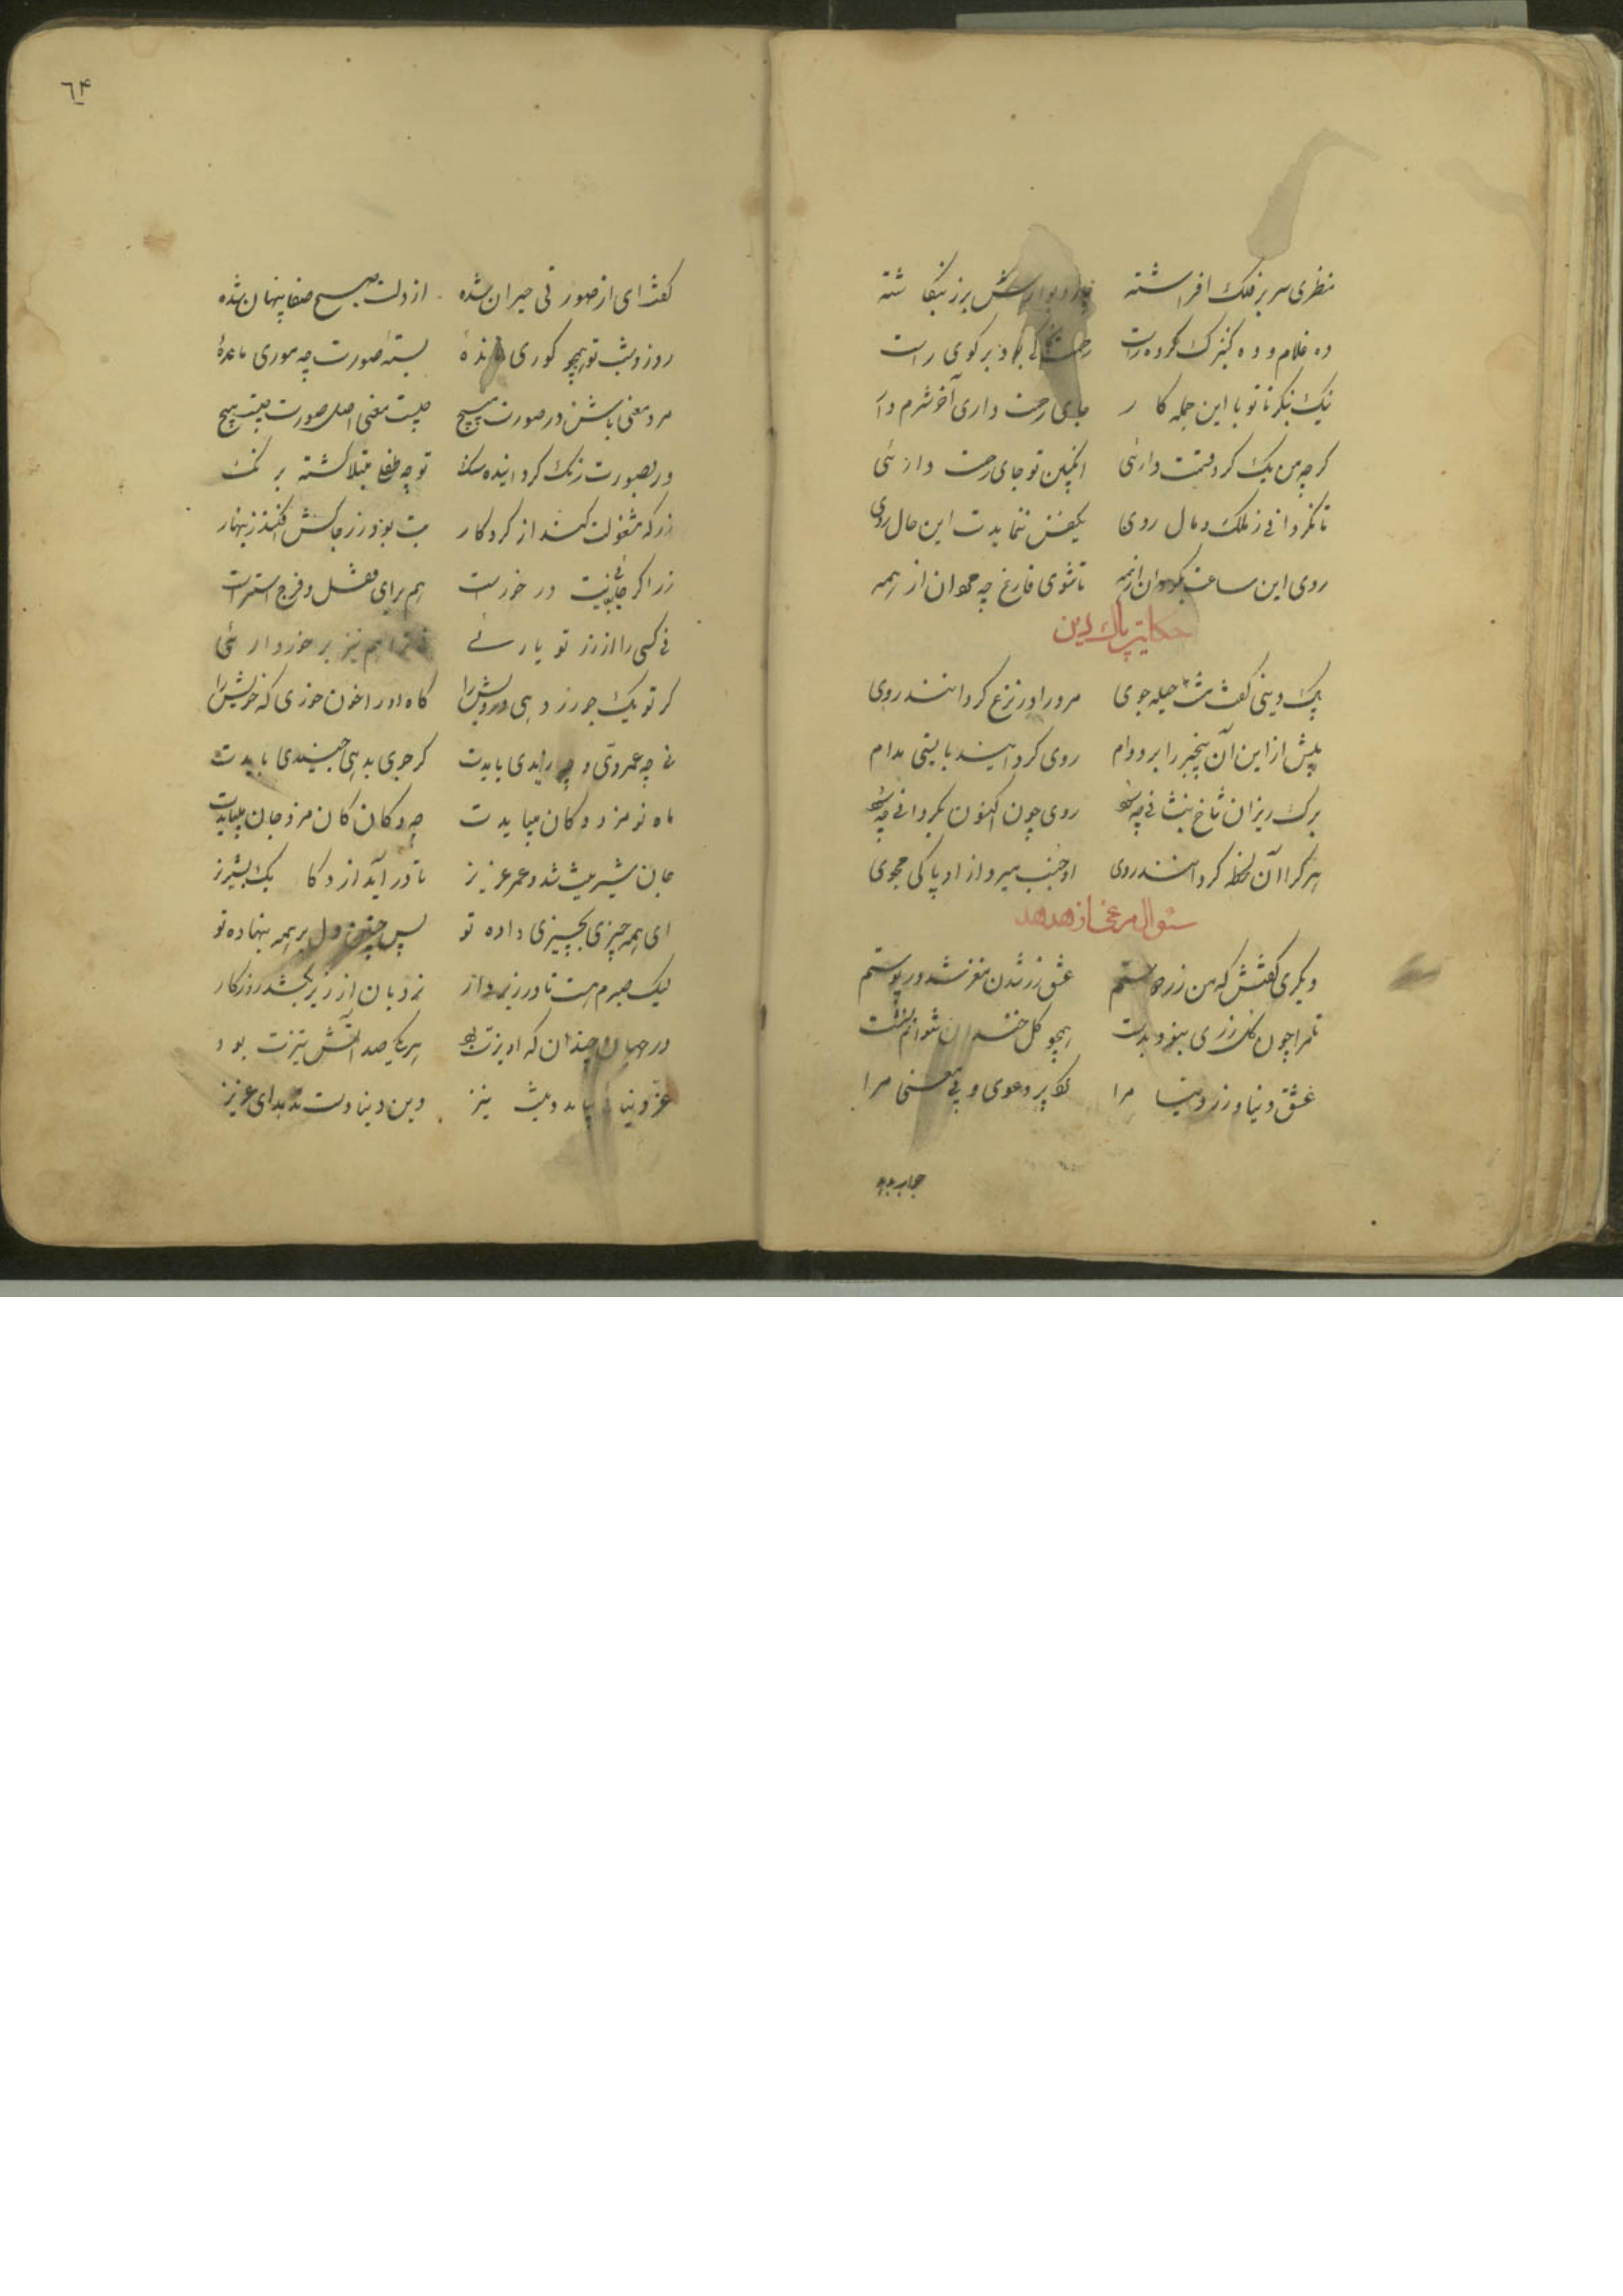 منظری سر بر فلک افراشته چار دیوارش بزر بنگاشته
ده غلام و ده کنیزک کرده راست رحمت کی بود بر کوی راست
نیک بنگر تا تو با این جمله کار جای رحمت داری آخر شرم دار
کر چه من یک کرده قسمت دارئی اینچنین تو جای رحمت دارئی
تا نکردانی ز ملک و مال روی یکنفس ننمایدت این حال روی
روی این ساعت بکردان از همه تا شوی فارغ چه مردان از همه
حکایت پاک دین
پاک دینی کفت مشتی حیله جوی مرد را در نزع کردانند روی
پیش از این آن بیخبر را بر دوام روی کردانیدن بایستی مدام
برک ریزان شاخ بنشانی چه سود روی چون اکنون بکردانی چه سود
هر کرا آن لحظه کردانند روی او جنب میرد از او پاکی مجوی
سئوال مرغی از هدهد
دیکری کفتش که من زر دوستم عشق زر شد مغز در پوستم
تا مرا چون کل زری نبود بدست همچو کل خندان نتوانم نشست
عشق دنیا و زر دنیا مرا کرد پر دعوی و بی معنی مرا
جاب
٦۴
کفت ای از صورتی حیران شده از دلت صبح صفا پنهان شده
روز و شب تو همچو کوری مانده بسته صورت چه موری مانده
مرد معنی باش در صورت مپیچ چیست معنی اصل صورت چیست هیچ
زر بصورت رنک کردانیده سنک تو چه طفلی مبتلا کشته برنک
زر که مشغولت کند از کردکار بت بود در خاکش افکن زینهار
زر اکر جائی بغایت در خورست هم برای قفل فرج استرست
نی کسی را از زر تو یارئی نی ترا هم نیز برخوردارئی
کر تو یک جو زر دهی درویش را کاه او را خون خوری که خویش را
نی چه عمروی و چه زیدی بایدت کر جوی بدهی جنیدی بایدت
ماه نو مزد دکان میبایدت چه دکان کان مزد جان میبایدت
جان شیرینت شد و عمر عزیز تا در آید از دکان یک پشیز
ای همه چیزی بچیزی داده تو پس چنین دل بر همه بنهاده تو
لیک صبرم هست تا در زیر دار نردبان از زیر بکشد روزکار
در جهان چندان که اویزت بود هریکی صد آتش تیزت بود
غرق دنیا نباید دینت نیز دین و دنیا دست ندهد ای عزیز